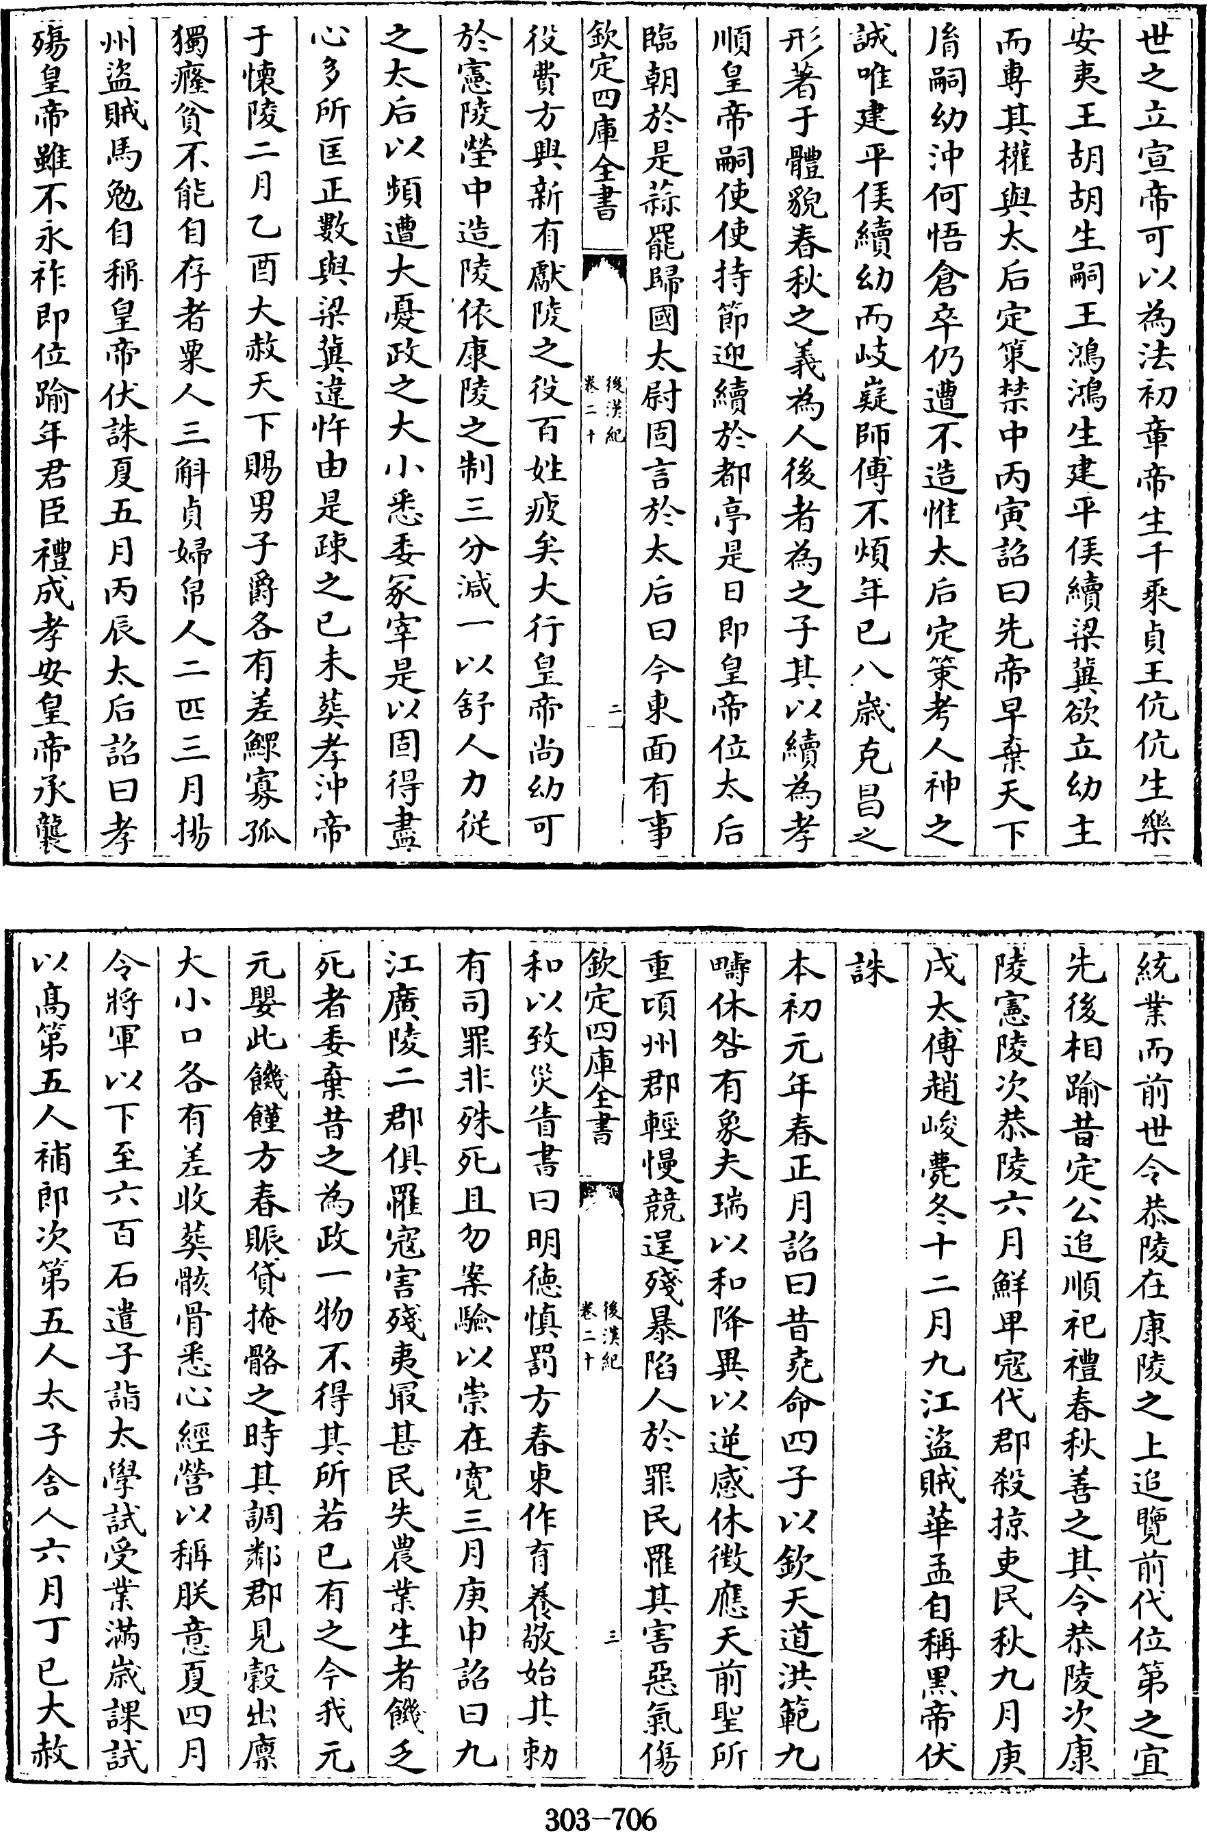 世之立宣帝可以為法初章帝生千乘貞王伉伉生樂
安夷王胡胡生嗣王鴻鴻生建平侯續梁冀欲立幼主
而專其權與太后定策禁中丙寅詔曰先帝早棄天下
胤嗣幼沖何悟倉卒仍遭不造惟太后定策考人神之
誠唯建平侯續幼而岐嶷師傅不煩年已八歲克昌之
形著于體貌春秋之義為人後者為之子其以續為孝
順皇帝嗣使使持節迎續於都亭是日即皇帝位太后
臨朝於是蒜罷歸國太尉固言於太后曰今東面有事
欽定四庫全書
後漢紀
卷二十
二
役費方興新有獻陵之役百姓疲矣大行皇帝尚幼可
於憲陵塋中造陵依康陵之制三分減一以舒人力從
之太后以頻遭大憂政之大小悉委冢宰是以固得盡
心多所匡正數與梁冀違忤由是疎之已未葬孝沖帝
于懷陵二月乙酉大赦天下賜男子爵各有差鰥寡孤
獨癃貧不能自存者粟人三斛貞婦帛人二匹三月揚
州盜賊馬勉自稱皇帝伏誅夏五月丙辰太后詔曰孝
殤皇帝雖不永祚即位踰年君臣禮成孝安皇帝承襲
統業而前世令恭陵在康陵之上追覽前代位第之宜
先後相踰昔定公追順祀禮春秋善之其令恭陵次康
陵憲陵次恭陵六月鮮卑寇代郡殺掠吏民秋九月庚
戌太傅趙峻薨冬十二月九江盜賊華孟自稱黑帝伏
誅
本初元年春正月詔曰昔堯命四子以欽天道洪範九
疇休咎有象夫瑞以和降異以逆感休徵應天前聖所
重頃州郡輕慢競逞殘暴陷人於罪民罹其害惡氣傷
欽定四庫全書
後漢紀
卷二十
三
和以致災眚書曰明德慎罰方春東作育養敬始其勑
有司罪非殊死且勿案驗以崇在寬三月庚申詔曰九
江廣陵二郡俱罹寇害殘夷最甚民失農業生者饑乏
死者委棄昔之為政一物不得其所若已有之今我元
元嬰此饑饉方春賑貸掩骼之時其調鄰郡見穀出廩
大小口各有差收葬骸骨悉心經營以稱朕意夏四月
令將軍以下至六百石遣子詣太學試受業滿歲課試
以高第五人補郎次第五人太子舍人六月丁巳大赦
303-706